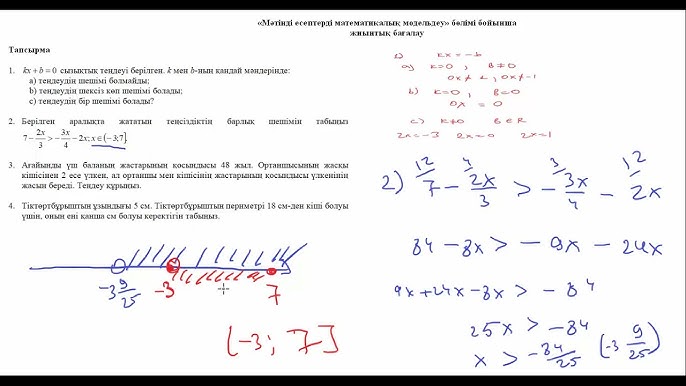 «Мәтінді есептерді математикалық модельдеу» бөлімі бойынша
жиынтық бағалау
Тапсырма
1. kx + b = 0 сызықтық теңдеуі берілген. k мен b-ның қандай мәндерінде:
a) теңдеудің шешімі болмайды;
b) теңдеудің шексіз көп шешімі болады;
c) теңдеудің бір шешімі болады?
2. Берілген аралықта жататын теңсіздіктің барлық шешімін табыңыз
7 - 2x/3 > - 3x/4 - 2x; x ∈ (-3;7]
3. Ағайынды үш баланың жастарының қосындысы 48 жыл. Ортаншысының жасы
кішісінен 2 есе үлкен, ал ортаншы мен кішісінің жастарының қосындысы үлкенінің
жасын береді. Теңдеу құрыңыз.
4. Тіктөртбұрыштың ұзындығы 5 см. Тіктөртбұрыштың периметрі 18 см-ден кіші болуы
үшін, оның ені қанша см болуы керектігін табыңыз.
1) kx = -b
a) k=0, b≠0
b) k=0, b=0
0x = 0
c) k≠0 b∈R
2x=-3 2x=0 2x=1
12 4 3 12
2) 7 - 2x/3 > - 3x/4 - 2x
84 - 8x > - 9x - 24x
9x+24x-8x > - 84
25x > -84
x > -84/25 (-3 9/25)
-3 9/25 -3 7
[-3; 7]